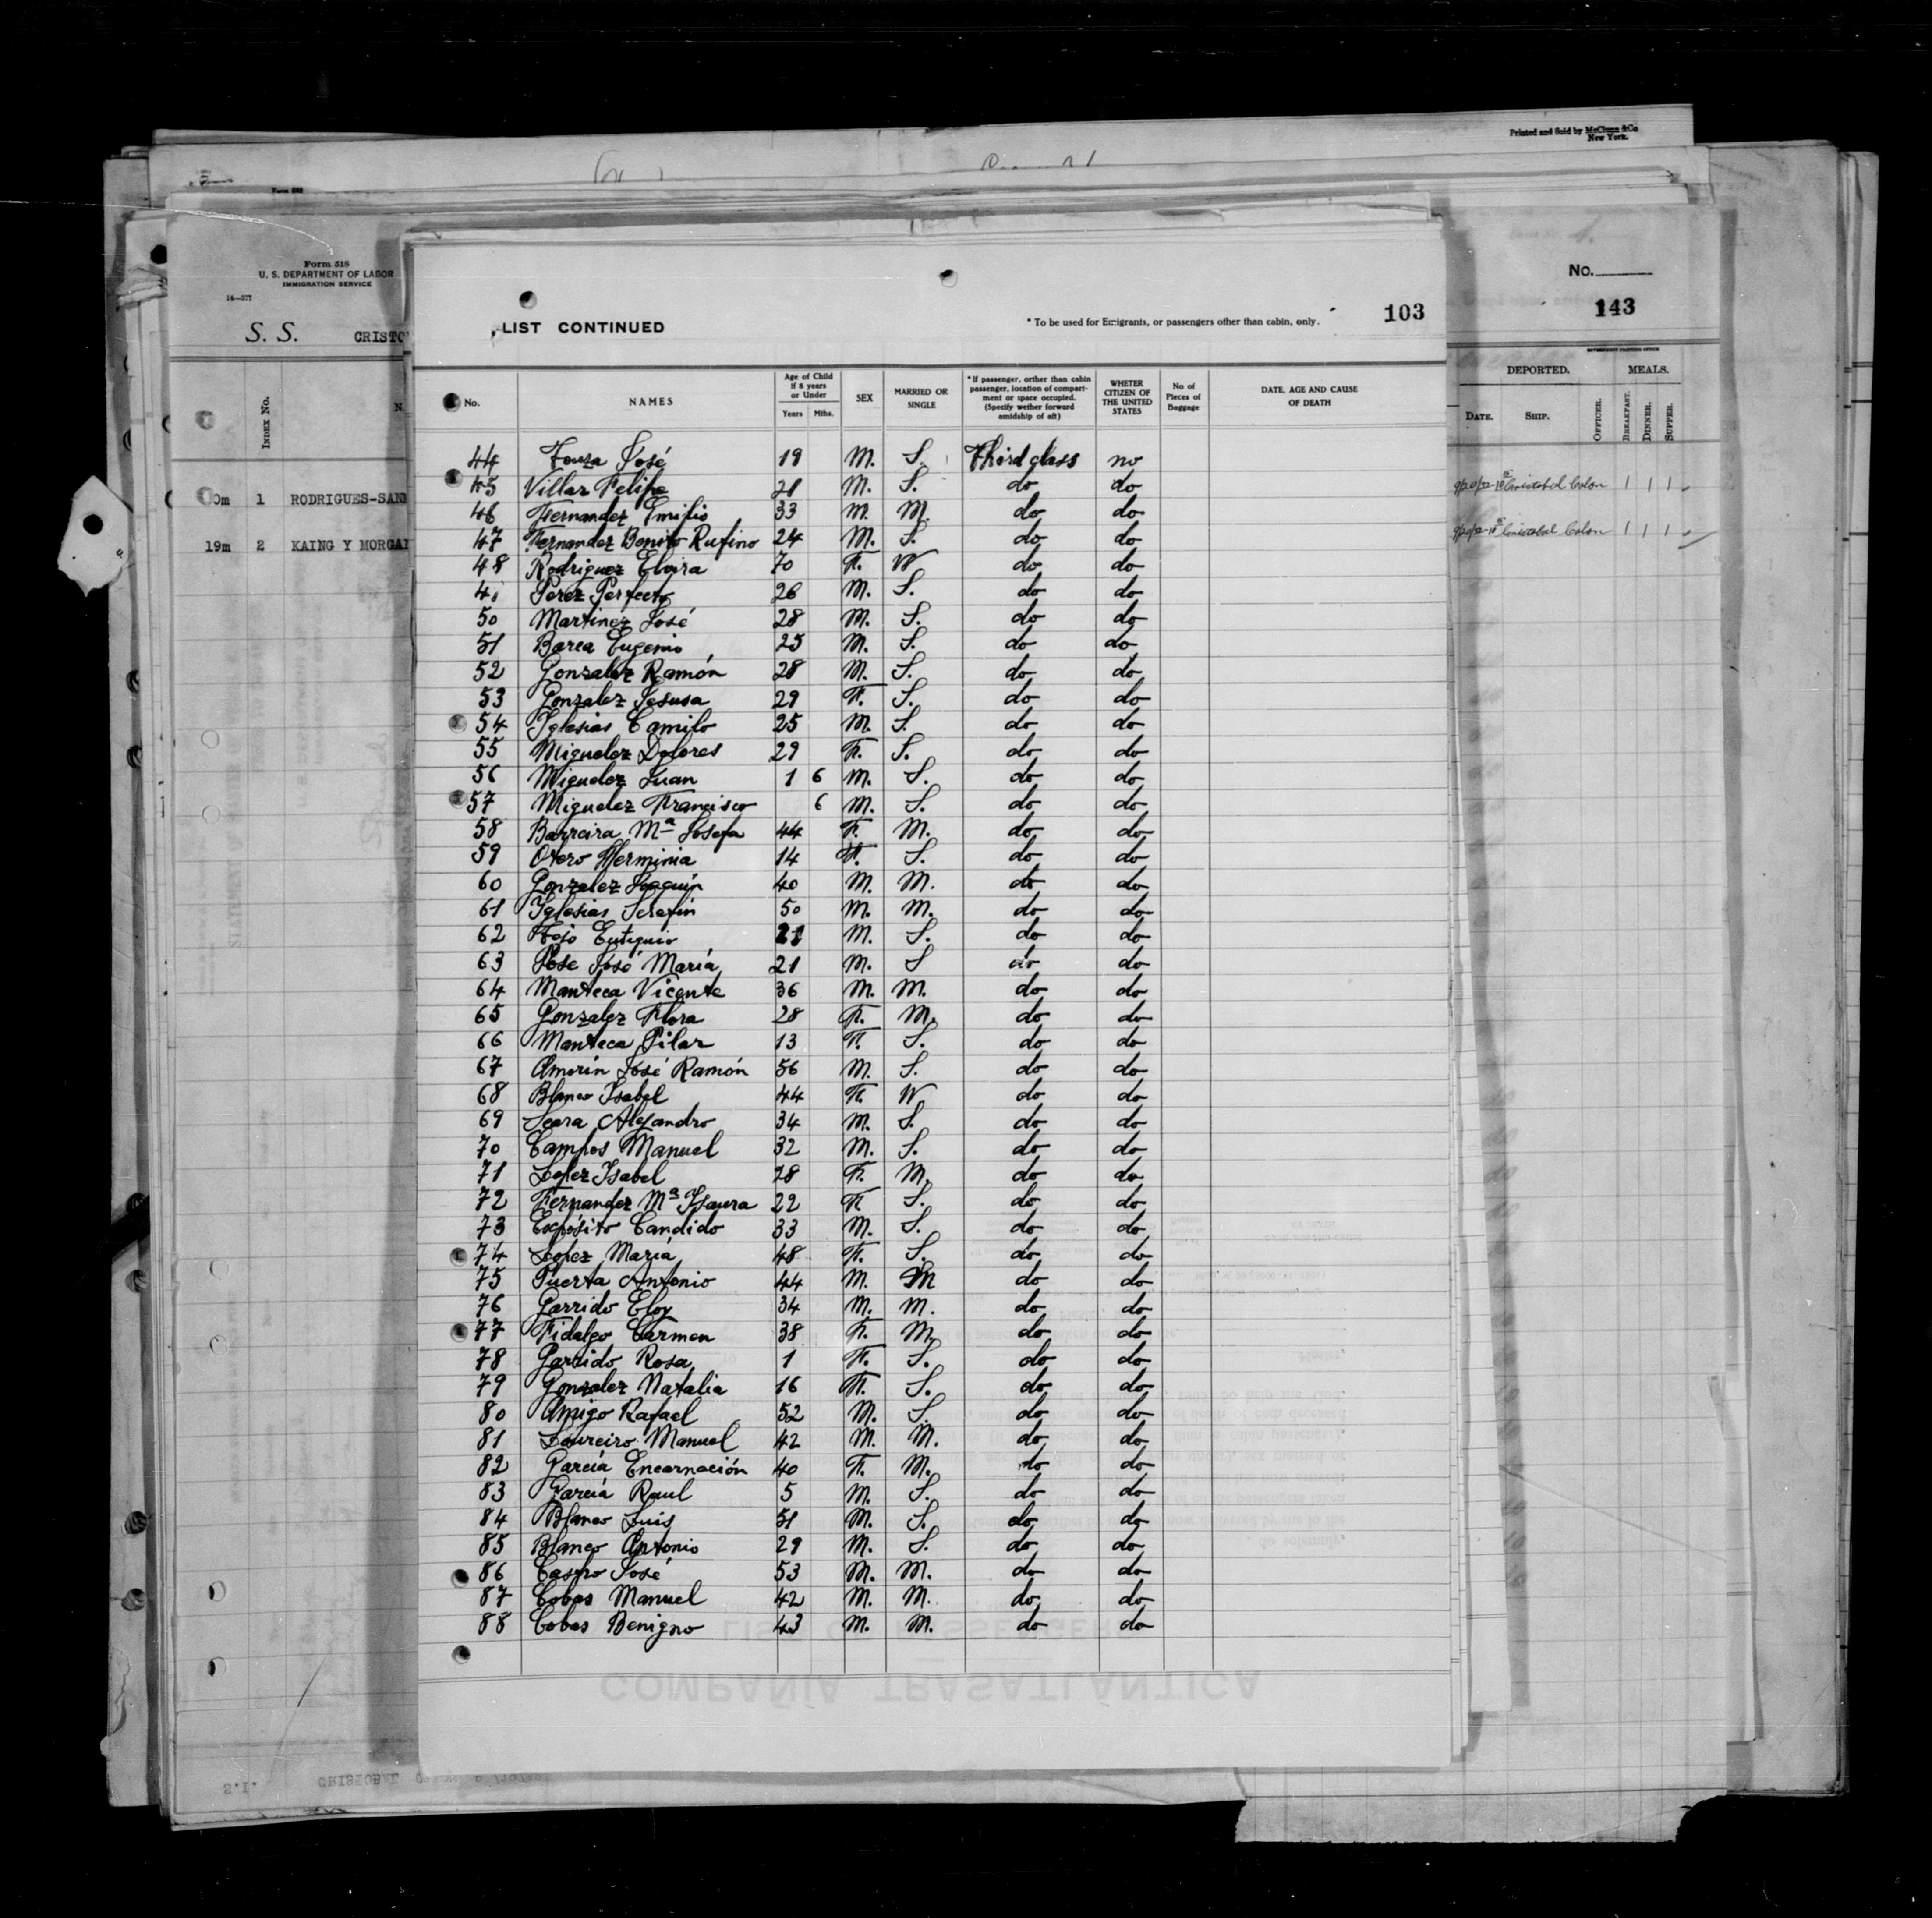 Printed and Sold by McClunn & Co
New York.
Form 518
U. S. DEPARTMENT OF LABOR
IMMIGRATION SERVICE
14—377
S. S. CRISTO
INDEX No.
N
1 RODRIGUES-SAN
19m 2 KAING Y MORGA
No.
143
DEPORTED. MEALS.
DATE. SHIP. OFFICER. BREAKFAST. DINNER. SUPPER.
Cristobal Colon 1 1 1
Cristobal Colon 1 1 1
LIST CONTINUED
* To be used for Emigrants, or passengers other than cabin, only.
103
No. NAMES Age of Child If 8 years or Under Years Mths. SEX MARRIED OR SINGLE * If passenger, orther than cabin passenger, location of compartment or space occupied. (Specify wether forward amidship of aft) WHETER CITIZEN OF THE UNITED STATES No of Pieces of Baggage DATE, AGE AND CAUSE OF DEATH
44 Touza José 19 M. S. Third class no
45 Villar Felipe 21 M. S. do do
46 Hernandez Emilio 33 M. M. do do
47 Fernandez Benito Rufino 24 M. S. do do
48 Rodriguez Elvira 70 F. W do do
4 Perez Perfecto 26 M. S. do do
50 Martinez José 28 M. S. do do
51 Barea Eugenio 25 M. S. do do
52 Gonzalez Ramón 28 M. S. do do
53 Gonzalez Jesusa 29 F. S. do do
54 Yglesias Camilo 25 M. S. do do
55 Miguelez Dolores 29 F. S. do do
56 Miguelez Juan 1 6 M. S. do do
57 Miguelez Francisco 6 M. S. do do
58 Barreira Mª Josefa 44 F. M. do do
59 Otero Herminia 14 F. S. do do
60 Gonzalez Joaquín 40 M. M. do do
61 Yglesias Serafin 50 M. M. do do
62 Eutiquio M. S. do do
63 Pose José María 21 M. S do do
64 Manteca Vicente 36 M. M. do do
65 Gonzalez Flora 28 F. M. do do
66 Manteca Pilar 13 F. S. do do
67 Amorin José Ramón 56 M. S. do do
68 Blanco Ysabel 44 F. W do do
69 Seara Alejandro 34 M. S. do do
70 Campos Manuel 32 M. S. do do
71 Lopez Ysabel 28 F. M. do do
72 Fernandez Mª Ysaura 22 F. S. do do
73 Expósito Candido 33 M. S. do do
74 Lopez María 48 F. S. do do
75 Puerta Antonio 44 M. M do do
76 Garrido Eloy 34 M. M. do do
77 Fidalgo Carmen 38 F. M. do do
78 Garrido Rosa 1 F. S. do do
79 Gonzalez Natalia 16 F. S. do do
80 Amigo Rafael 52 M. S. do do
81 Loureiro Manuel 42 M. M. do do
82 García Encarnación 40 F. M. do do
83 García Raul 5 M. S. do do
84 Blanco Luis 51 M. S. do do
85 Blanco Antonio 29 M. S. do do
86 Castro José 53 M. M. do do
87 Cobas Manuel 42 M. M. do do
88 Cobas Benigno 43 M. M. do do
COMPAÑIA TRASATLANTICA